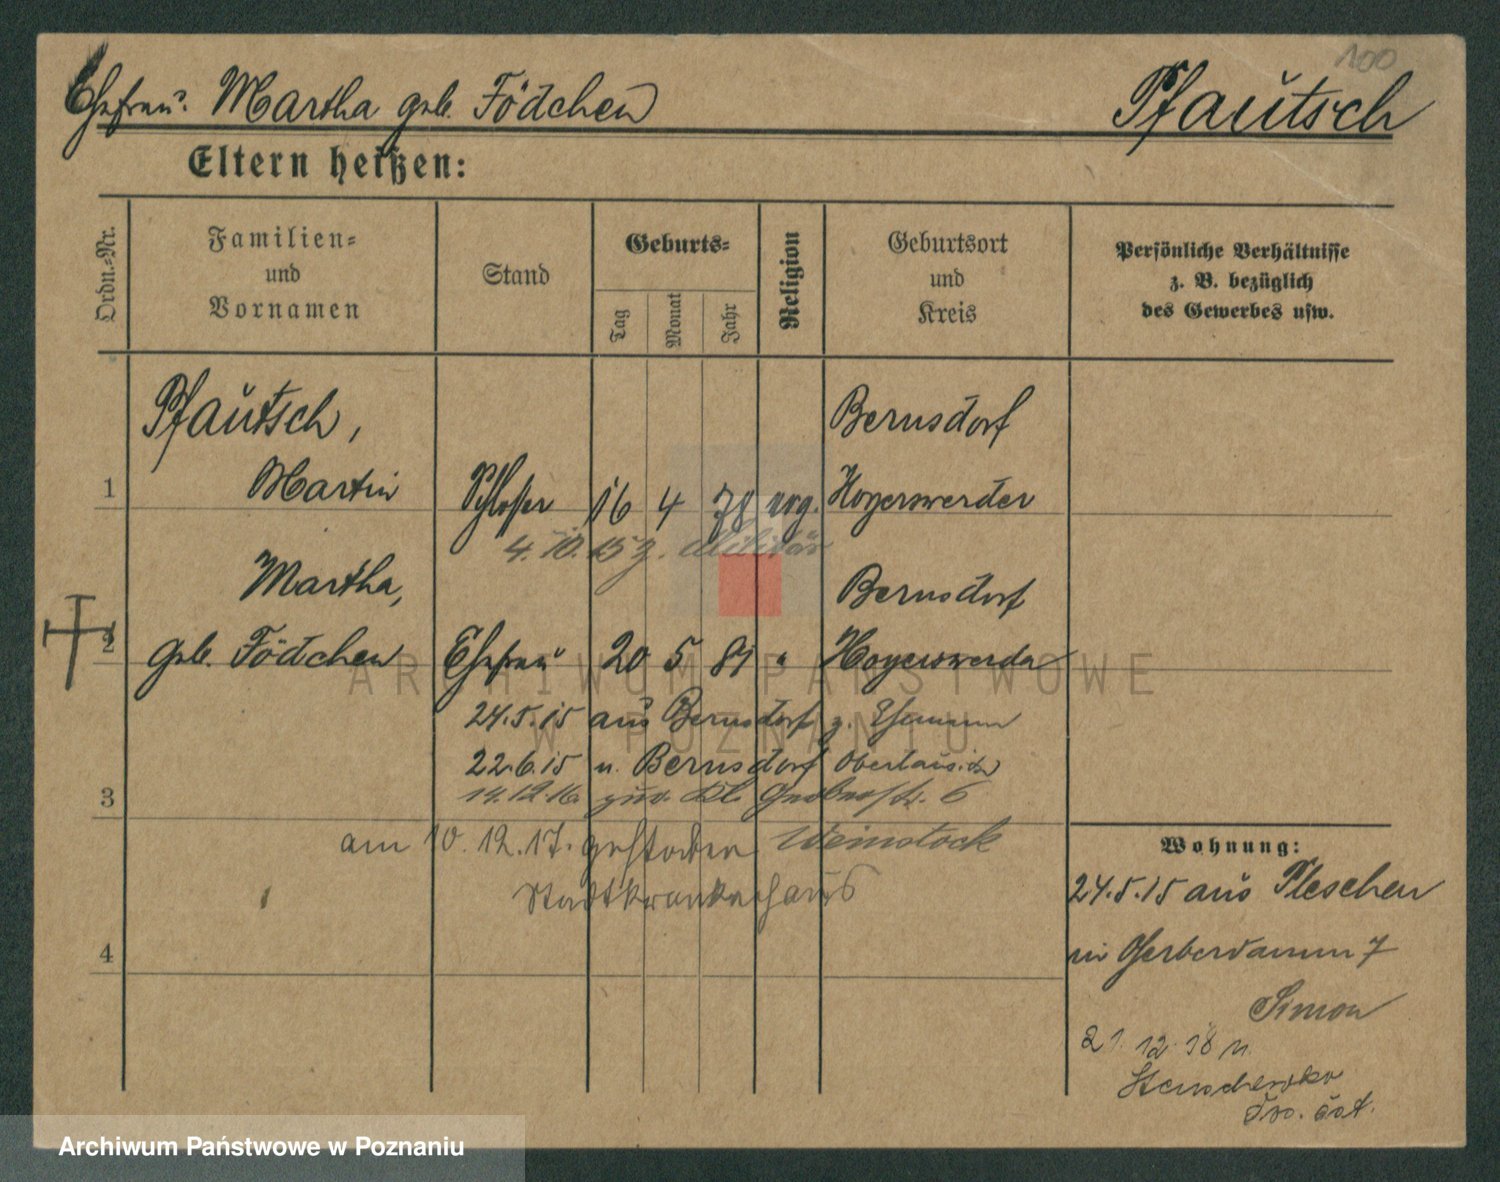 100
Ehefrau. Martha geb. Födchen Pfautsch
Eltern heißen:
Ordn.-Nr.
Familien-
und
Vornamen
Stand
Geburts-
Tag
Monat
Jahr
Religion
Geburtsort
und
Kreis
Persönliche Verhältnisse
z. B. bezüglich
des Gewerbes usw.
Pfautsch, Bernsdorf
1 Martin Schlosser 16 4 78 evg. Hoyerswerder
4. 10. 15 z. Militär
Martha, Bernsdorf
2 geb. Födchen Ehefrau 20 5 81 " Hoyerswerda
24.5.15 aus Bernsdorf z. Ehemann
22.6.15 n. Bernsdorf
3 14.12.16
am 10.12.17. gestorben Weinstock
Stadtkrankenhaus
4
Wohnung:
24.5.15 aus Pleschen
in Gerberdamm 7
Simon
21. 12. 18 n.
ARCHIWUM PAŃSTWOWE
W POZNANIU
Archiwum Państwowe w Poznaniu